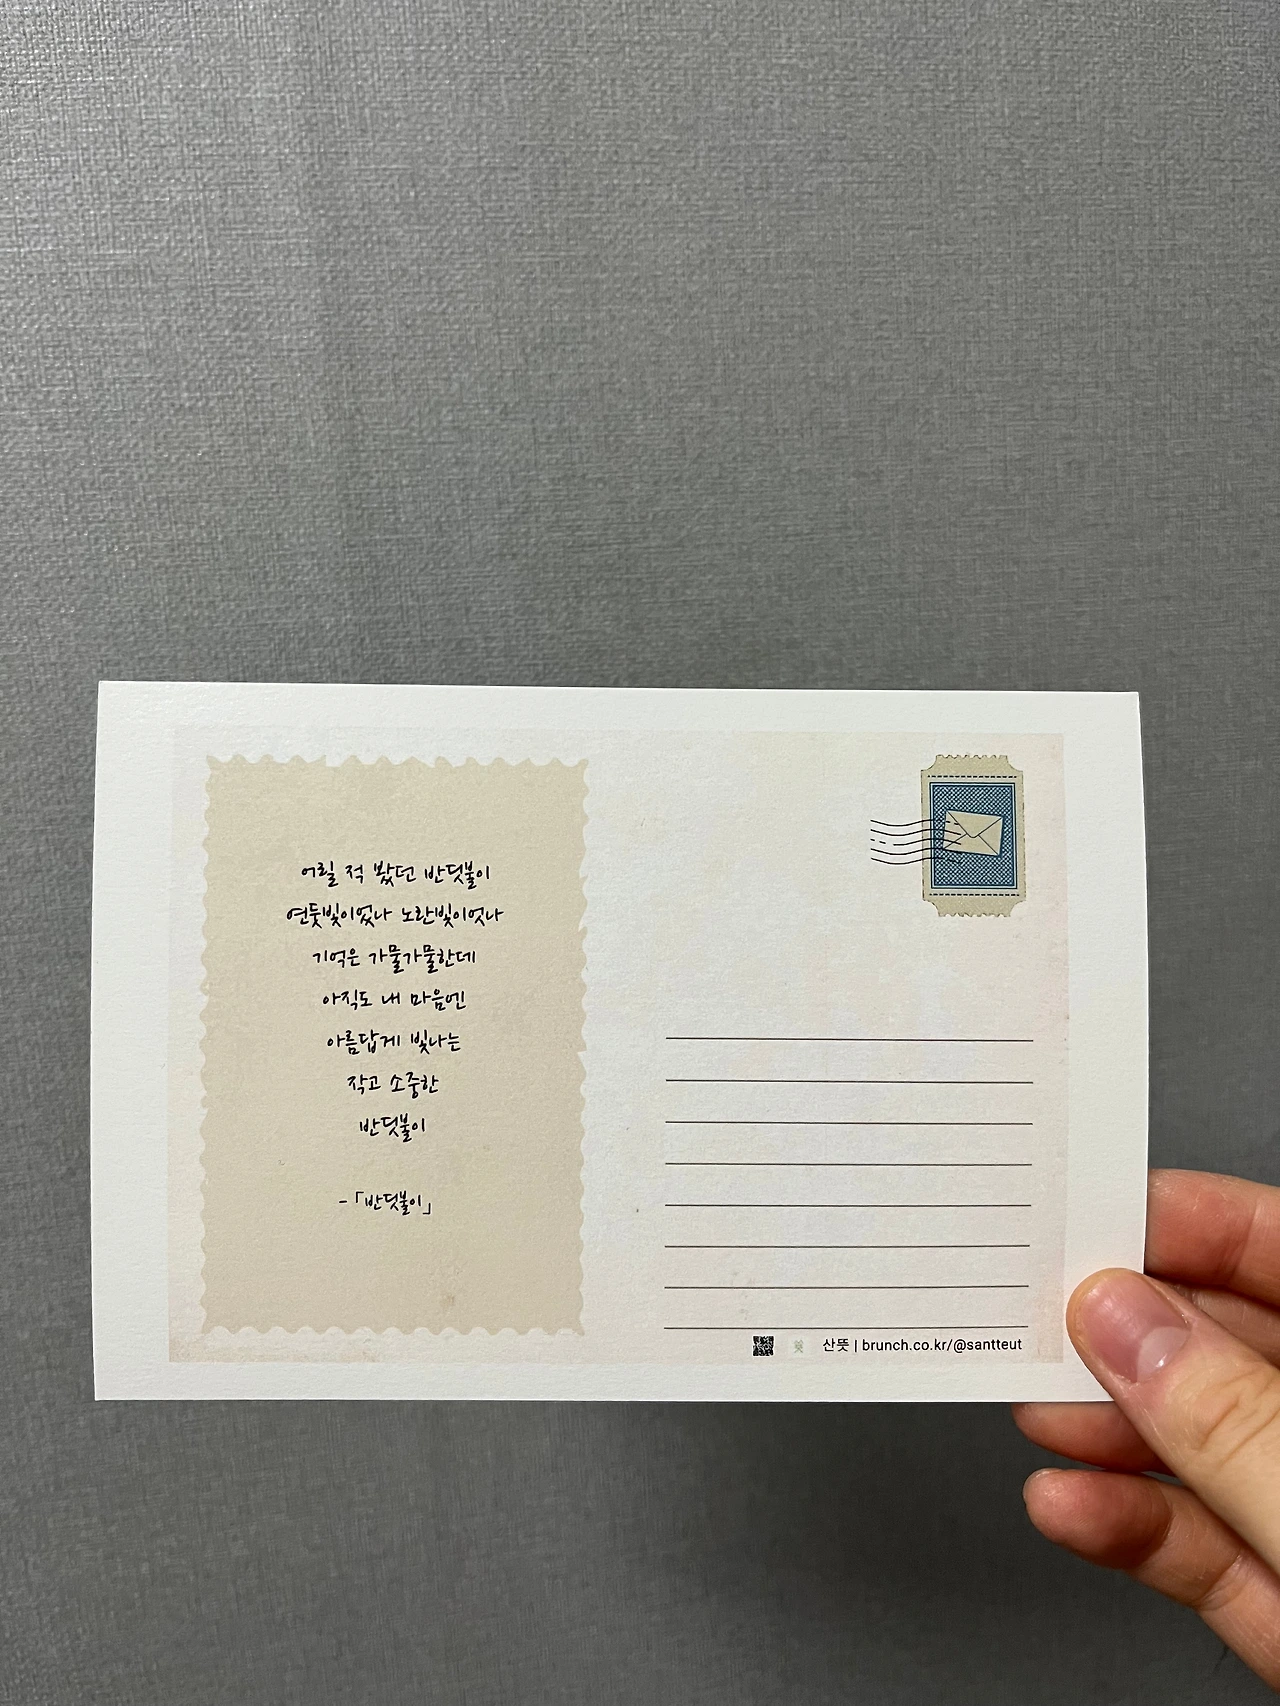 어릴 적 봤던 반딧불이
연둣빛이었나 노란빛이었나
기억은 가물가물한데
아직도 내 마음엔
아름답게 빛나는
작고 소중한
반딧불이
-「반딧불이」
산뜻 | brunch.co.kr/@santteut